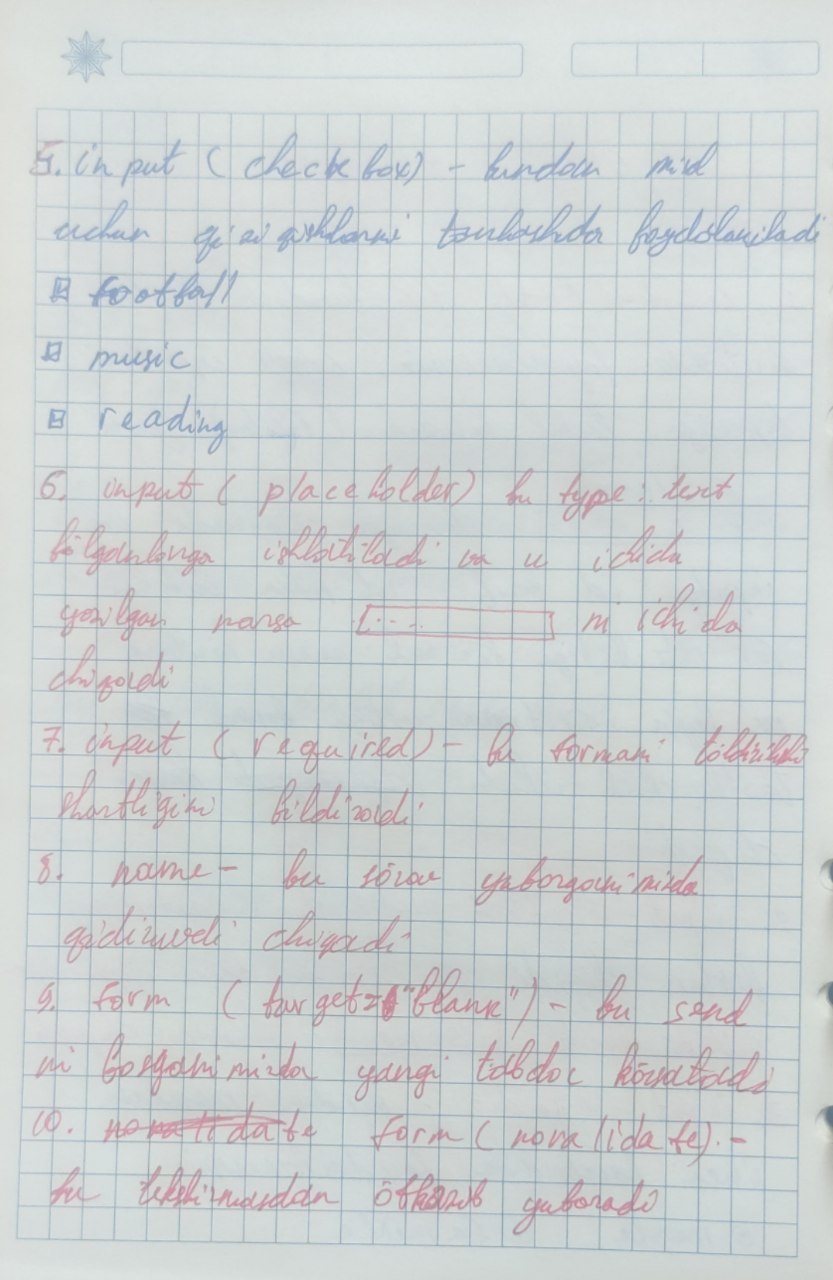 5. input ( checkbox) - bundan misol
uchun qiziqishlarni tanlashda foydalaniladi
football
music
reading
6. input ( placeholder) bu type: text
bòlganlarga ishlatiladi va u ichida
yozilgan narsa [....] ni ichida
chiqaradi
7. input ( required) - bu formani
shartligini bildiradi
8. name - bu sòrov yuborganimizda
chiqadi
9. form ( target="blank") - bu send
ni bosganimizda yangi tabda kòrsatadi
10. novalidate form ( novalidate). -
bu tekshirmasdan ötkazib yuboradi